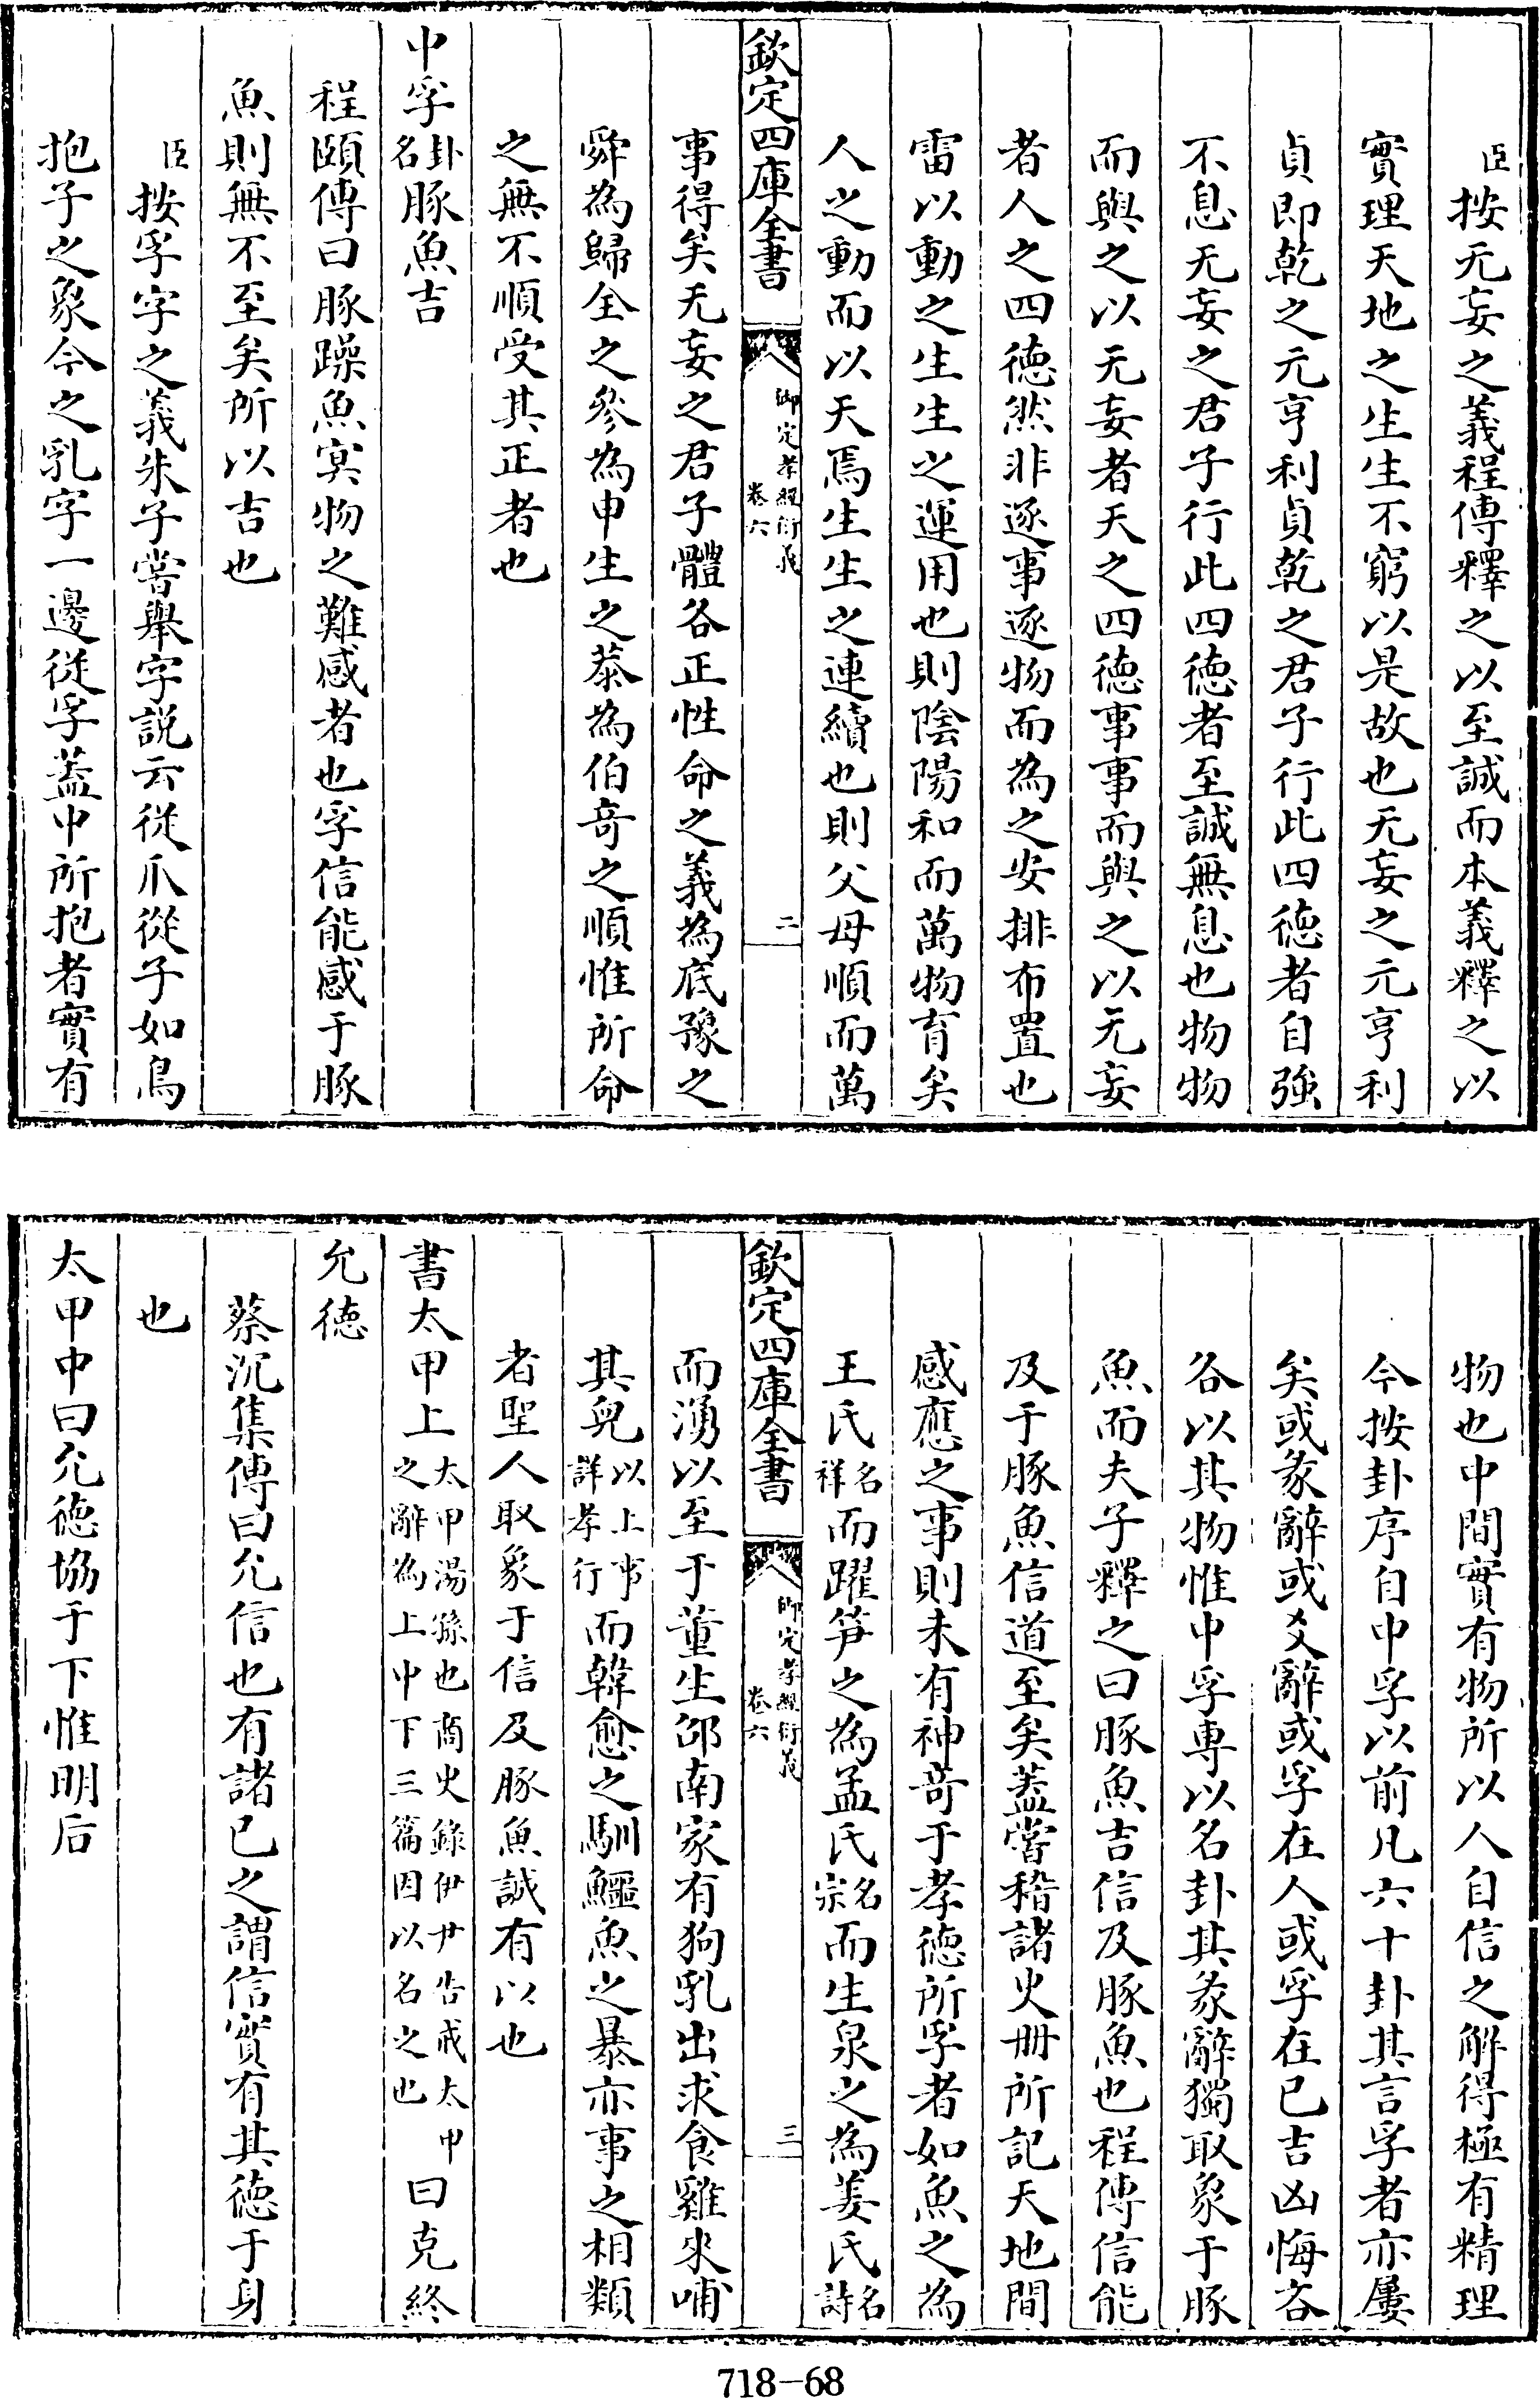 臣按无妄之義程傳釋之以至誠而本義釋之以
實理天地之生生不窮以是故也无妄之元亨利
貞即乾之元亨利貞乾之君子行此四德者自強
不息无妄之君子行此四德者至誠無息也物物
而與之以无妄者天之四德事事而與之以无妄
者人之四德然非逐事逐物而為之安排布置也
雷以動之生生之運用也則陰陽和而萬物育矣
人之動而以天焉生生之連續也則父母順而萬
欽定四庫全書 御定孝經衍義 卷六 二
事得矣无妄之君子體各正性命之義為底豫之
舜為歸全之參為申生之恭為伯奇之順惟所命
之無不順受其正者也
中孚卦名豚魚吉
程頤傳曰豚躁魚冥物之難感者也孚信能感于豚
魚則無不至矣所以吉也
臣按孚字之義朱子嘗舉字説云從爪從子如鳥
抱子之象今之乳字一邊從孚葢中所抱者實有
物也中間實有物所以人自信之解得極有精理
今按卦序自中孚以前凡六十卦其言孚者亦屢
矣或彖辭或爻辭或孚在人或孚在已吉凶悔吝
各以其物惟中孚專以名卦其彖辭獨取象于豚
魚而夫子釋之曰豚魚吉信及豚魚也程傳信能
及于豚魚信道至矣葢嘗稽諸史册所記天地間
感應之事則未有神竒于孝德所孚者如魚之為
王氏名祥而躍笋之為孟氏名宗而生泉之為姜氏名詩
欽定四庫全書 御定孝經衍義 卷六 三
而湧以至于董生邵南家有狗乳出求食雞來哺
其兒以上事詳孝行而韓愈之馴鱷魚之暴亦事之相類
者聖人取象于信及豚魚誠有以也
書太甲上太甲湯孫也商史錄伊尹告戒太甲之辭為上中下三篇因以名之也曰克終
允德
蔡沉集傳曰允信也有諸已之謂信實有其德于身
也
太甲中曰允德協于下惟明后
718-68